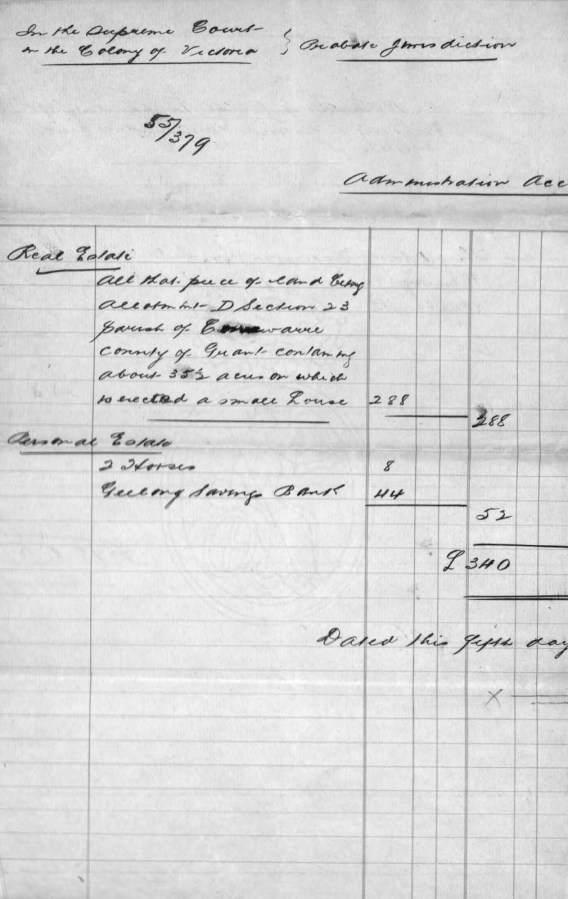 In the Supreme Court
in the Colony of Victoria } Probate Jurisdiction
55/379
Administration Acc
Real Estate
All that piece of land being
Allotment D Section 23
parish of Connewarre
county of Grant containing
about 35½ acres on which
is erected a small house 288
288
Personal Estate
2 Horses 8
Geelong Savings Bank 44
52
£ 340
Dated this fifth day
X